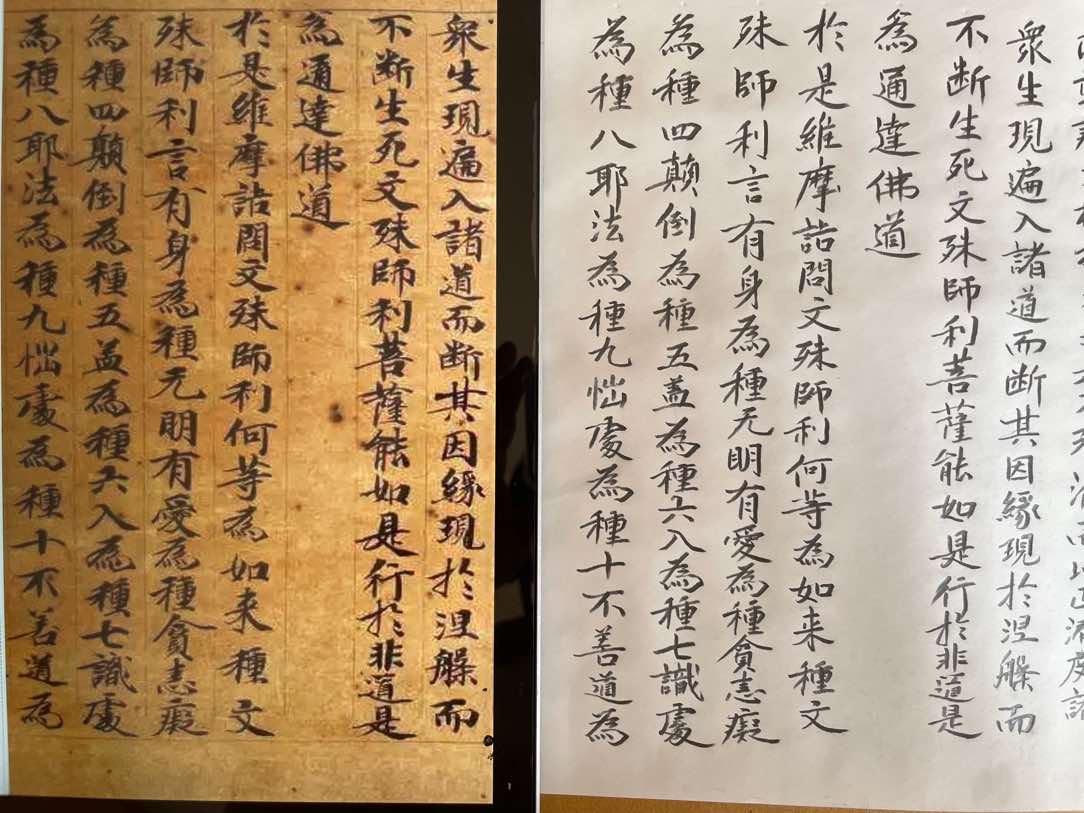 衆生現遍入諸道而断其因緣現於涅槃而
不断生死文殊師利菩薩能如是行於非道是
為通達佛道
於是維摩詰問文殊師利何等為如来種文
殊師利言有身為種无明有愛為種貪恚癡
為種四顛倒為種五盖為種六入為種七識處
為種八耶法為種九惱處為種十不善道為
衆生現遍入諸道而断其因緣現於涅槃而
不断生死文殊師利菩薩能如是行於非道是
為通達佛道
於是維摩詰問文殊師利何等為如来種文
殊師利言有身為種无明有愛為種貪恚癡
為種四顛倒為種五盖為種六入為種七識處
為種八耶法為種九惱處為種十不善道為